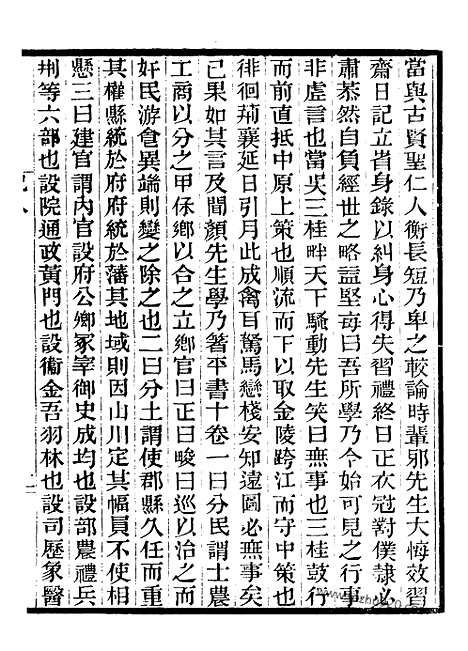 當與古賢聖仁人衡長短乃卑之較論時輩邪先生大悔效習
齋日記立省身錄以糾身心得失習禮終日正衣冠對僕隸必
肅恭然自負經世之略益堅每曰吾所學乃今始可見之行事
非虛言也當吳三桂畔天下騷動先生笑曰無事也三桂鼓行
而前直抵中原上策也順流而下以取金陵跨江而守中策也
徘徊荊襄延日引月此成禽耳駑馬戀棧安知遠圖必無事矣
已果如其言及聞顏先生學乃著平書十卷一曰分民謂士農
工商以分之甲保鄉以合之立鄉官曰正曰畯曰巡以治之而
奸民游食異端則變之除之也二曰分土謂使郡縣久任而重
其權縣統於府府統於藩其地域則因山川定其幅員不使相
懸三曰建官謂內官設府公鄉冢宰御史成均也設部農禮兵
刑等六部也設院通政黃門也設衞金吾羽林也設司歷象醫